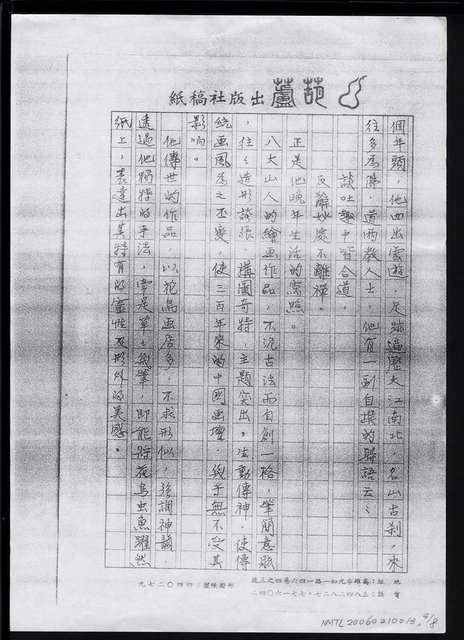 紙稿社版出蘆葫
個年頭，他四出雲遊，足跡遍歷大江南北，名山古剎，來
往多為佛、道兩教人士，他有一副自撰的聯語云：
談吐趣中皆合道，
文辭妙處不離禪。
正是他晚年生活的寫照。
八大山人的繪画作品，不泥古法而自創一格，筆簡意賅
，往往造形誇張，構圖奇特，主題突出，生動傳神，使傳
統画風為之丕變，使三百年來的中國画壇，幾乎無不受其
影响。
他傳世的作品，以花鳥画居多，不求形似，強調神韻，
透過他獨特的手法，常是草草幾筆，即能將花鳥虫魚躍然
紙上，表達出其特有的靈性及形外的美感。
地址：高雄市九如一路一四六巷四之三號
電話：三八四二八二七・七七一六〇四二
郵撥帳號：四四〇二七九
NMTL20060210013, 4/8